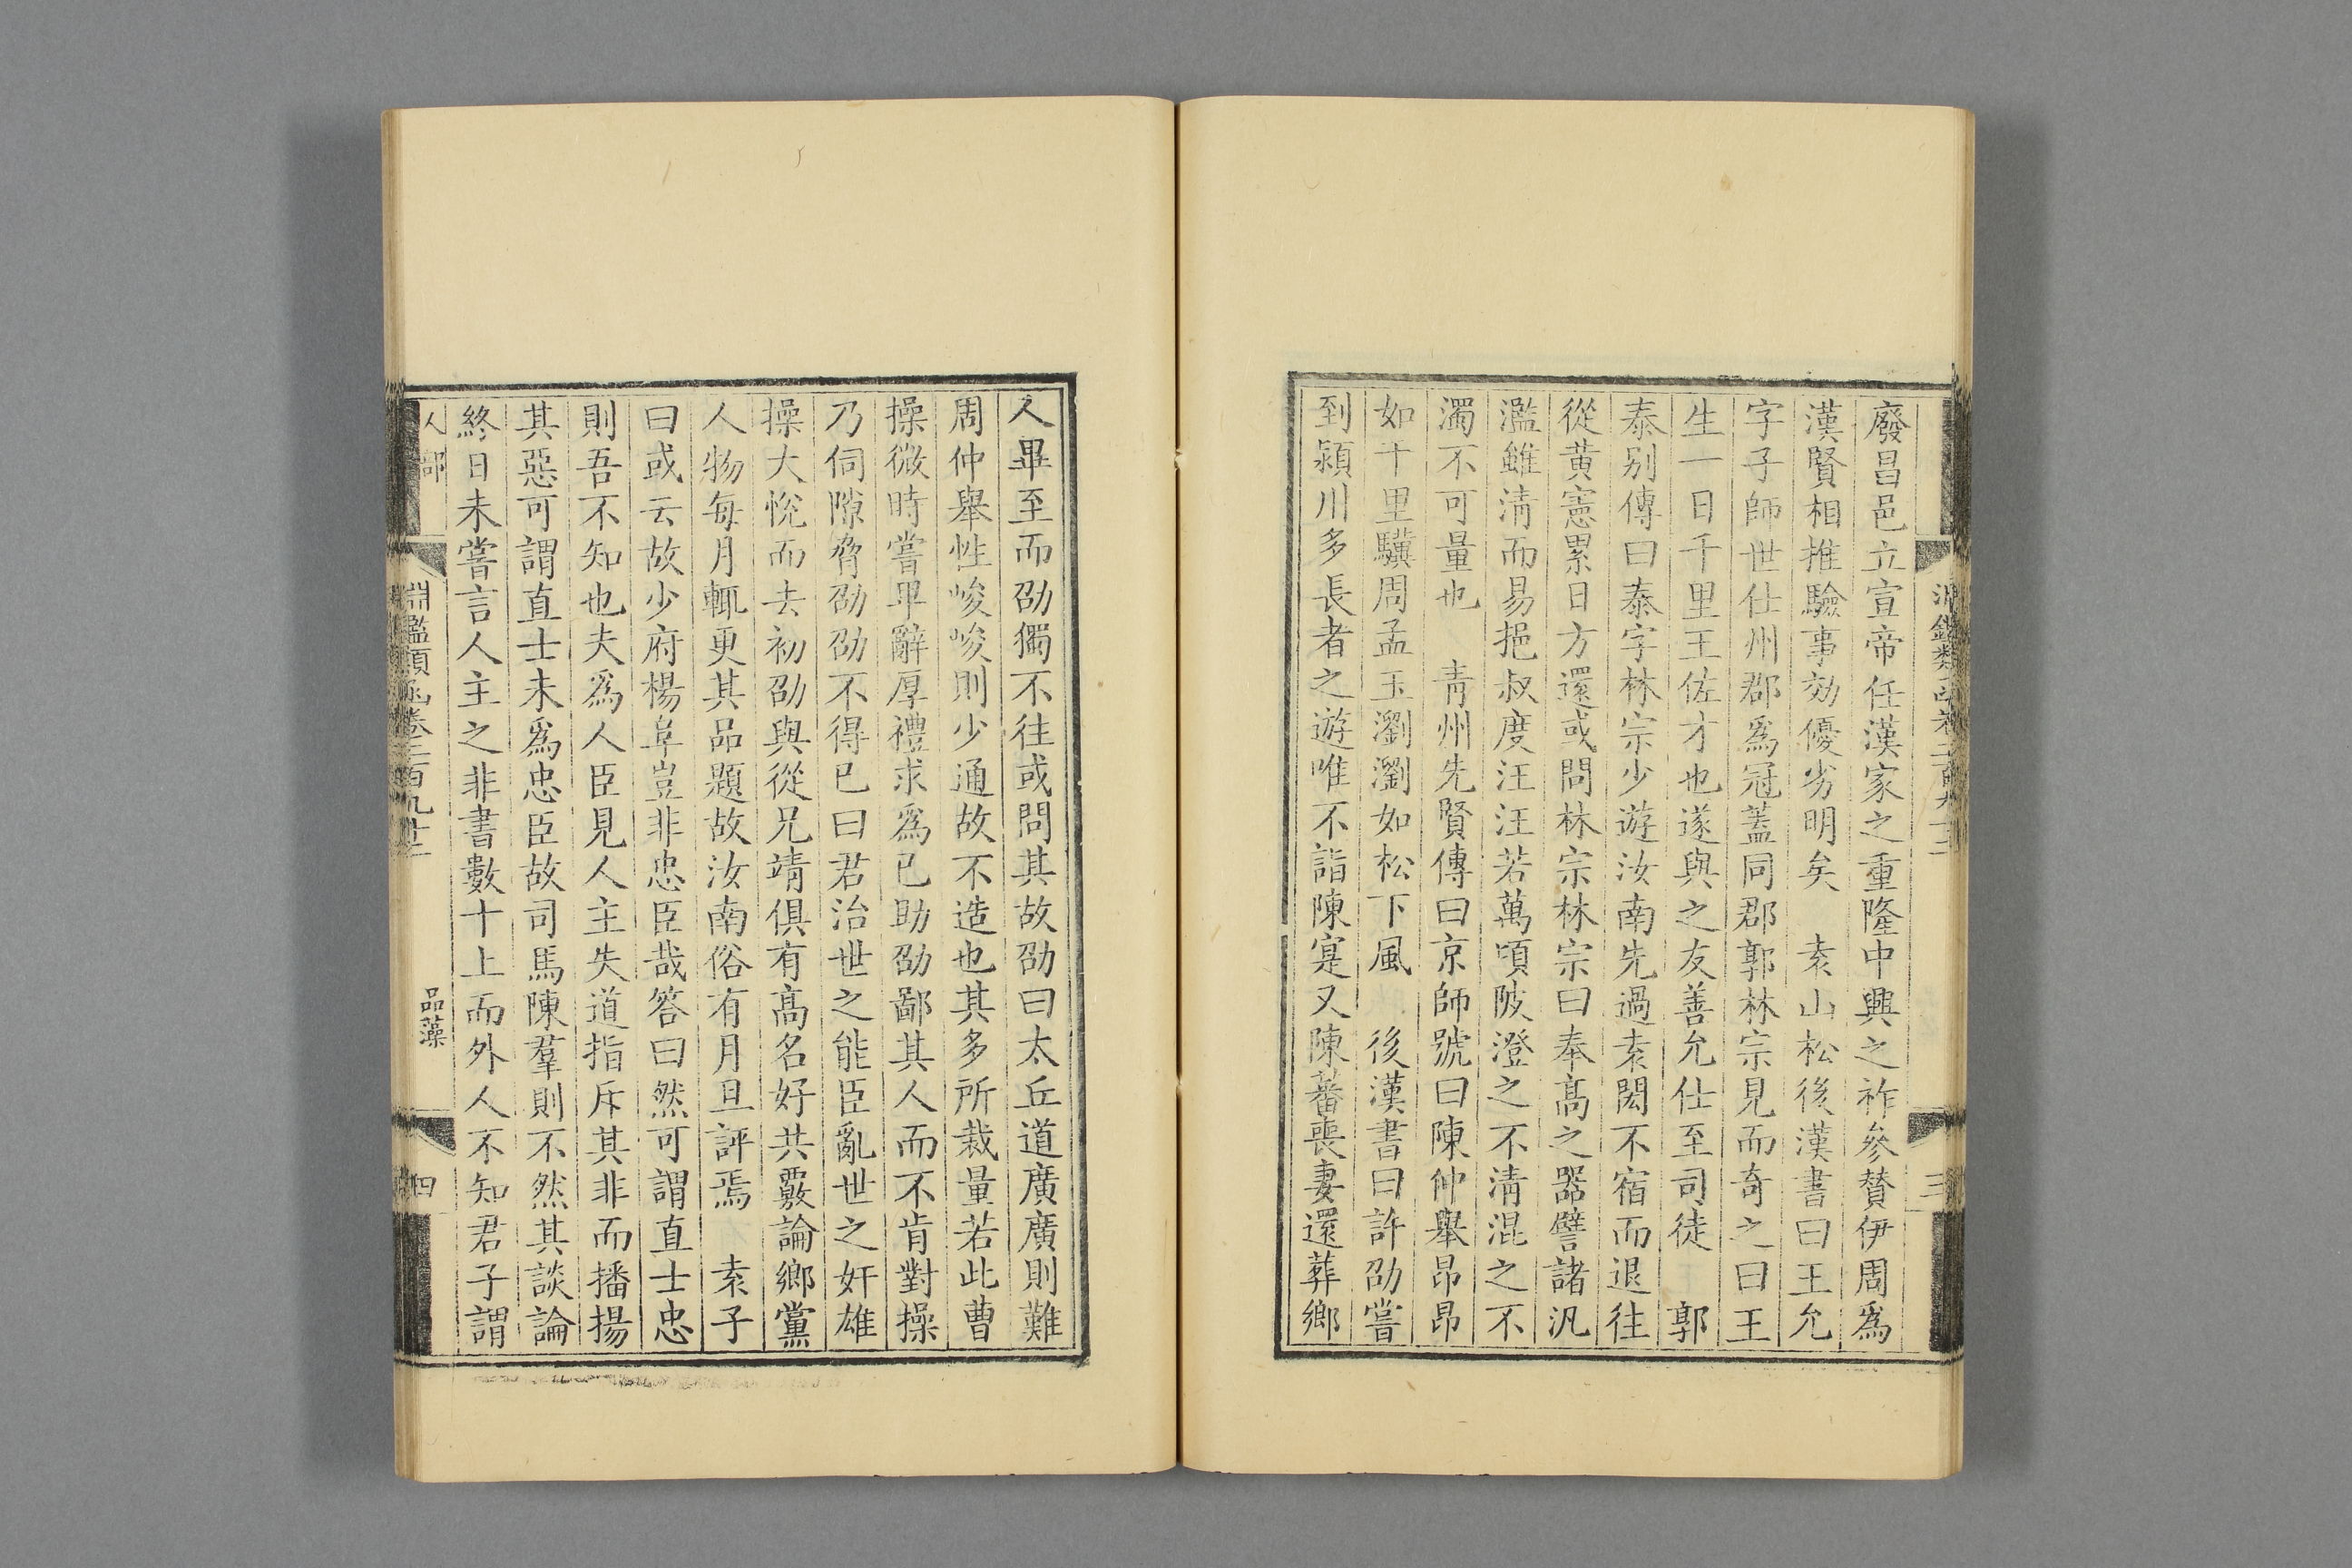 廢昌邑立宣帝任漢家之重隆中興之祚參贊伊周爲
漢賢相推驗事効優劣明矣　袁山松後漢書曰王允
字子師世仕州郡爲冠蓋同郡郭林宗見而奇之曰王
生一日千里王佐才也遂與之友善允仕至司徒　郭
泰别傳曰泰字林宗少遊汝南先過袁閎不宿而退往
從黄憲累日方還或問林宗林宗曰奉高之器譬諸汎
濫雖清而易挹叔度汪汪若萬頃陂澄之不清混之不
濁不可量也　青州先賢傳曰京師號曰陳仲舉昂昂
如千里驥周孟玉瀏瀏如松下風　後漢書曰許劭嘗
到潁川多長者之遊唯不詣陳寔又陳蕃喪妻還葬鄉
人畢至而劭獨不往或問其故劭曰太丘道廣廣則難
周仲舉性峻峻則少通故不造也其多所裁量若此曹
操微時嘗畢辭厚禮求爲已助劭鄙其人而不肯對操
乃伺隙脅劭劭不得已曰君治世之能臣亂世之奸雄
操大悅而去初劭與從兄靖俱有高名好共覈論鄉黨
人物每月輒更其品題故汝南俗有月旦評焉　袁子
曰或云故少府楊阜豈非忠臣哉答曰然可謂直士忠
則吾不知也夫爲人臣見人主失道指斥其非而播揚
其惡可謂直士未爲忠臣故司馬陳羣則不然其談論
終日未嘗言人主之非書數十上而外人不知君子謂
人部
淵鑑類函卷二百九十二
品藻
四